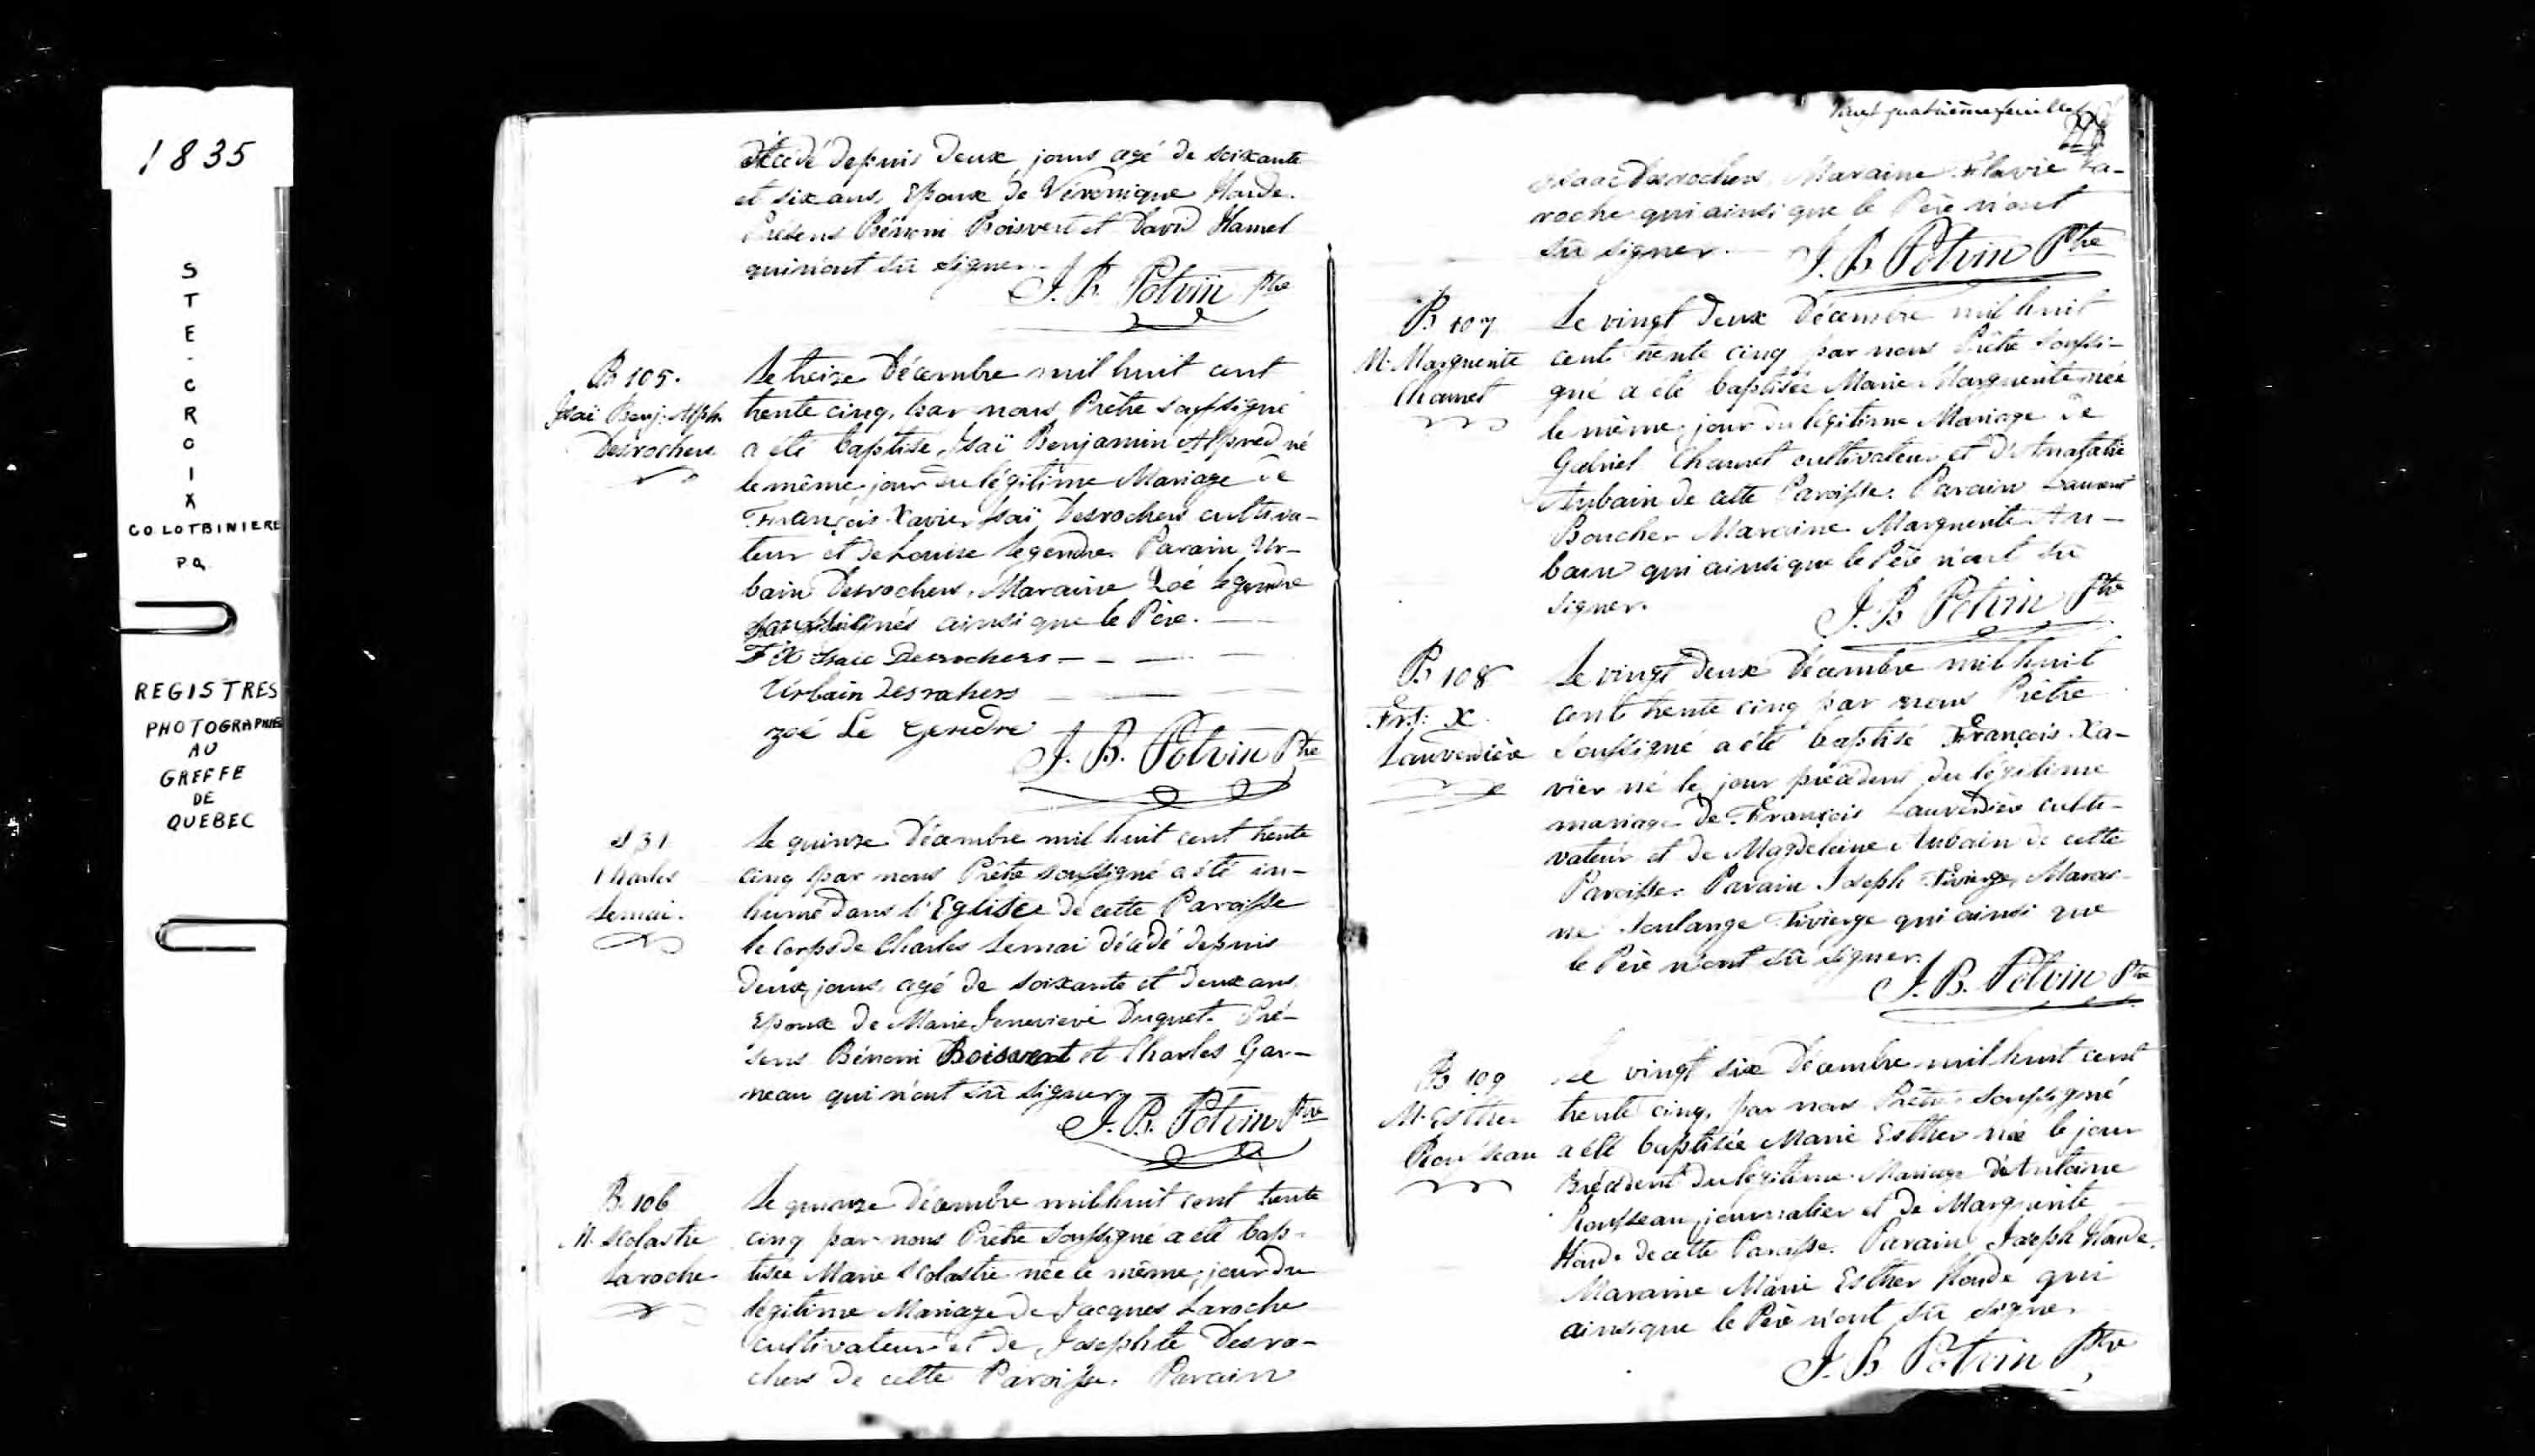 1835
STE-CROIX
CO LOTBINIERE
P.Q.
REGISTRES
PHOTOGRAPHIES
AU
GREFFE
DE
QUEBEC
décédé depuis deux jours agé de soixante
et six ans, Epoux de Véronique Houde.
Présens Bénoni Boisvert et David Hamel
qui n'ont su signer.
J. B. Potvin Ptre
B 105.
Isaï Benj. Alph.
Desrochers
Le treize Décembre mil huit cent
trente cinq, par nous Prêtre soussigné
a été baptisé, Isaï Benjamin Alfred né
le même jour du légitime Mariage de
François Xavier Isaï Desrochers cultiva-
teur et de Louise Legendre. Parain Ur-
bain Desrochers, Maraine Zoé Legendre
soussignés ainsi que le Père.
F X Isaie Desrochers
Urbain Desrochers
zoé Le Gendre
J. B. Potvin Ptre
S 31
Charles
Lemai.
Le quinze Décembre mil huit cent trente
cinq par nous Prêtre soussigné a été in-
humé dans l'Eglise de cette Paroisse
le corps de Charles Lemai décédé depuis
deux jours, agé de soixante et deux ans
Epoux de Marie Genevieve Duquet. Pré-
sens Bénoni Boisvert et Charles Gar-
neau qui n'ont su signer
J. B. Potvin Ptre
B. 106
M. Scolastie
Laroche
Le quinze Décembre mil huit cent trente
cinq par nous Prêtre soussigné a été bap-
tisée Marie Scolastie née le même jour du
légitime Mariage de Jacques Laroche
cultivateur et de Josephte Desro-
chers de cette Paroisse. Parain
Vingt quatrième feuillet
Isaac Desrochers, Maraine Flavie La-
roche qui ainsi que le Père n'ont
su signer.
J. B Potvin Ptre
B 107
M. Marguerite
Hamel
Le vingt deux Décembre mil huit
cent trente cinq par nous Prêtre soussi-
gné a été baptisée Marie Marguerite née
le même jour du légitime Mariage de
Gabriel Hamel cultivateur et d'Anastasie
Aubain de cette Paroisse. Parain Laurent
Boucher Maraine Marguerite Au-
bain qui ainsi que le Père n'ont su
signer.
J. B Potvin Ptre
B 108
Frs: X.
Lauverdière
Le vingt deux Décembre mil huit
cent trente cinq par nous Prêtre
soussigné a été baptisé François Xa-
vier né le jour précédent du légitime
mariage de François Lauverdière culti-
vateur et de Magdeleine Aubain de cette
Paroisse. Parain Joseph Tivierge, Marai-
ne Soulange Tivierge qui ainsi que
le Père n'ont su signer.
J. B. Potvin Ptre
B 109
M. Esther
Rousseau
Le vingt six Décembre mil huit cent
trente cinq, par nous Prêtre soussigné
a été baptisée Marie Esther née le jour
précédent du légitime Mariage d'Antoine
Rousseau journalier et de Marguerite
Houde de cette Paroisse. Parain Joseph Houde.
Maraine Marie Esther Houde qui
ainsi que le Père n'ont su signer
J. B Potvin Ptre